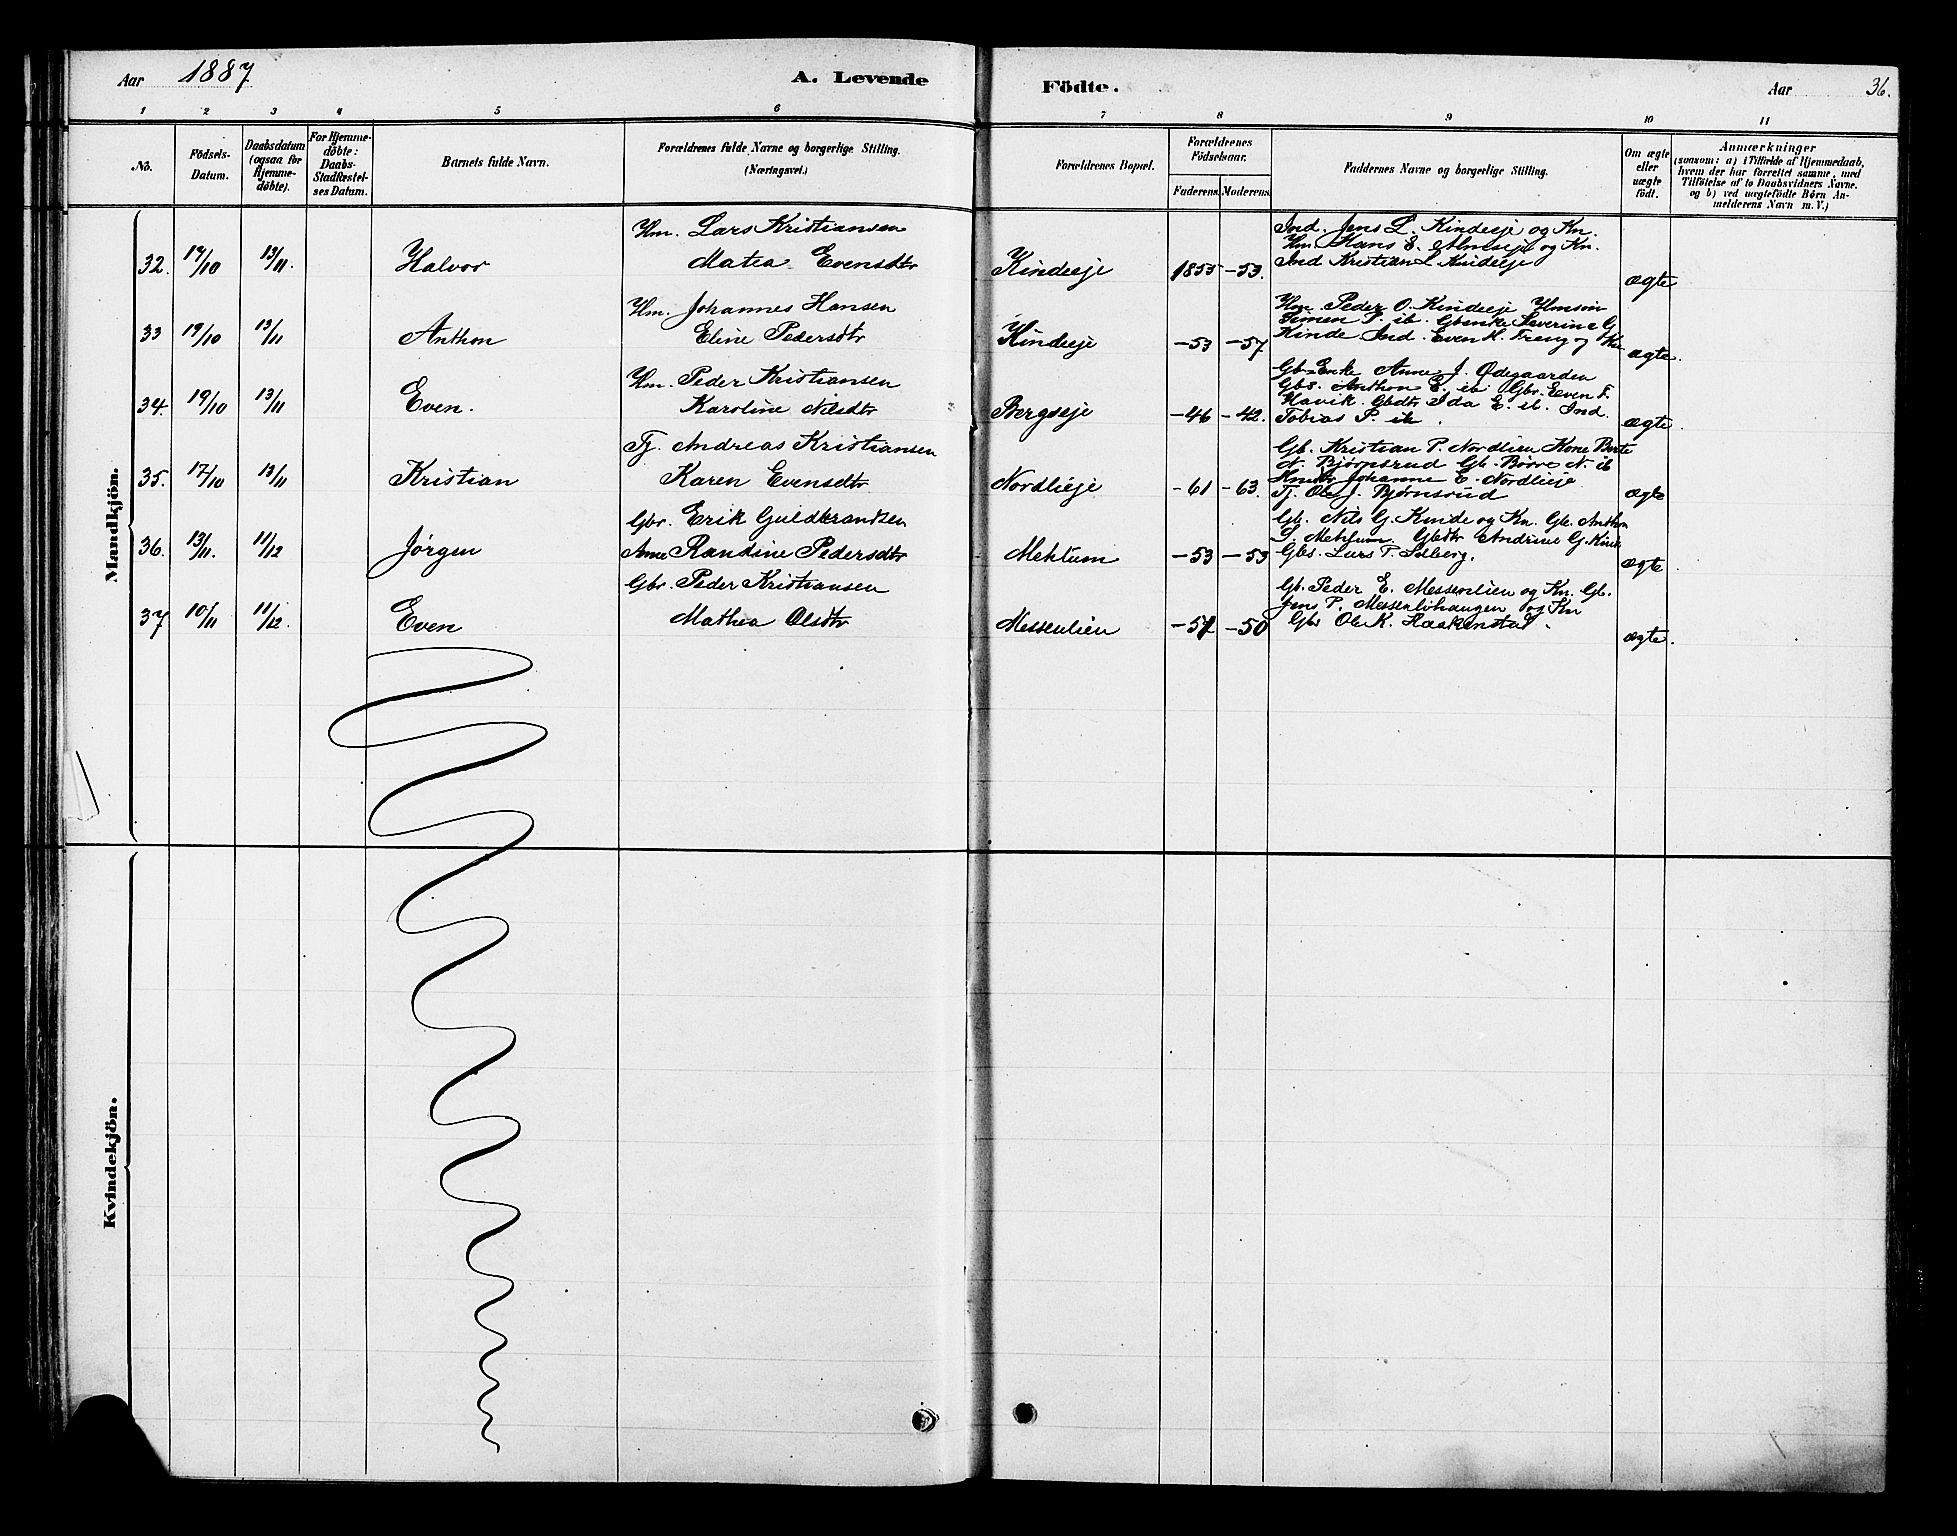 Aar 1887 A. Levende Födte. Aar 36.
1 2 3 4 5 6 7 8 9 10 11
No.
Födsels-Datum.
Daabsdatum (ogsaa for Hjemme-döbte).
For Hjemme-döbte: Daabs-Stadfæstel-ses Datum.
Barnets fulde Navn.
Forældrenes fulde Navne og borgerlige Stilling.
(Næringsvei.)
Forældrenes Bopæl.
Forældrenes Födselsaar.
Faderens. Moderens.
Faddernes Navne og borgerlige Stilling.
Om ægte eller uægte födt.
Anmærkninger
(saasom: a) i Tilfælde af Hjemmedaab,
hvem der har forrettet samme, med
Tilföielse af to Daabsvidners Navne,
og b) ved uægtefödte Börn An-
melderens Navn m. V.)
Mandkjön.
Hm. Lars Kristiansen
32. 17/10 13/11. Halvor Matea Evensdtr Kindeeje 1855 -53. ægte
Ind. Jens L. Kindeeje og Kn.
Hm Hans E. Almseje og Kn.
Ind Kristian L Kindeeje
Hm. Johannes Hansen
33 19/10 13/11 Anthon Eline Pedersdtr Kindeeje -53 -57 ægte.
Hm. Peder O. Kindeeje Hmsön
Simen P. ib. Gbenke Severine G
Kinde. Ind. Even H. Freng og Kn
Hm. Peder Kristiansen
34. 19/10 13/11 Even. Karoline Nilsdtr Bergseje -46 -42. ægte.
Gb. Enke Anne J. Ødegaarden
Gbs. Anthon E. ib. Gbr. Even F.
Havik. Gbdtr Ida E. ib. Ind.
Tobias P. ib.
Tj. Andreas Kristiansen
35. 17/10 13/11 Kristian Karen Evensdtr Nordlieje -61 -63. ægte
Gb. Kristian P. Nordlien Kone Berte
N. Bjørnsrud Gb. Børre N. ib
Johanne E. Nordlieje
Tj. Ole J. Bjørnsrud
Gbr. Erik Guldbrandsen
36. 13/11. 11/12 Jørgen Anne Randine Pedersdtr Mehlum -53 -53 ægte
Gb. Nils G. Kinde og Kn. Gb. Anthon
S. Mehlum. Gbdtr Andrine G. Kinde
Gbs. Lars P. Solberg.
Gbr. Peder Kristiansen
37 10/11 11/12. Even Mathea Olsdtr Messenlien -51 -50 ægte.
Gb. Peder E. Messenlien og Kn. Gb.
Jens P. Messenlihaugen og Kn
Gbr Ole K. Haakenstad.
Kvindekjön.